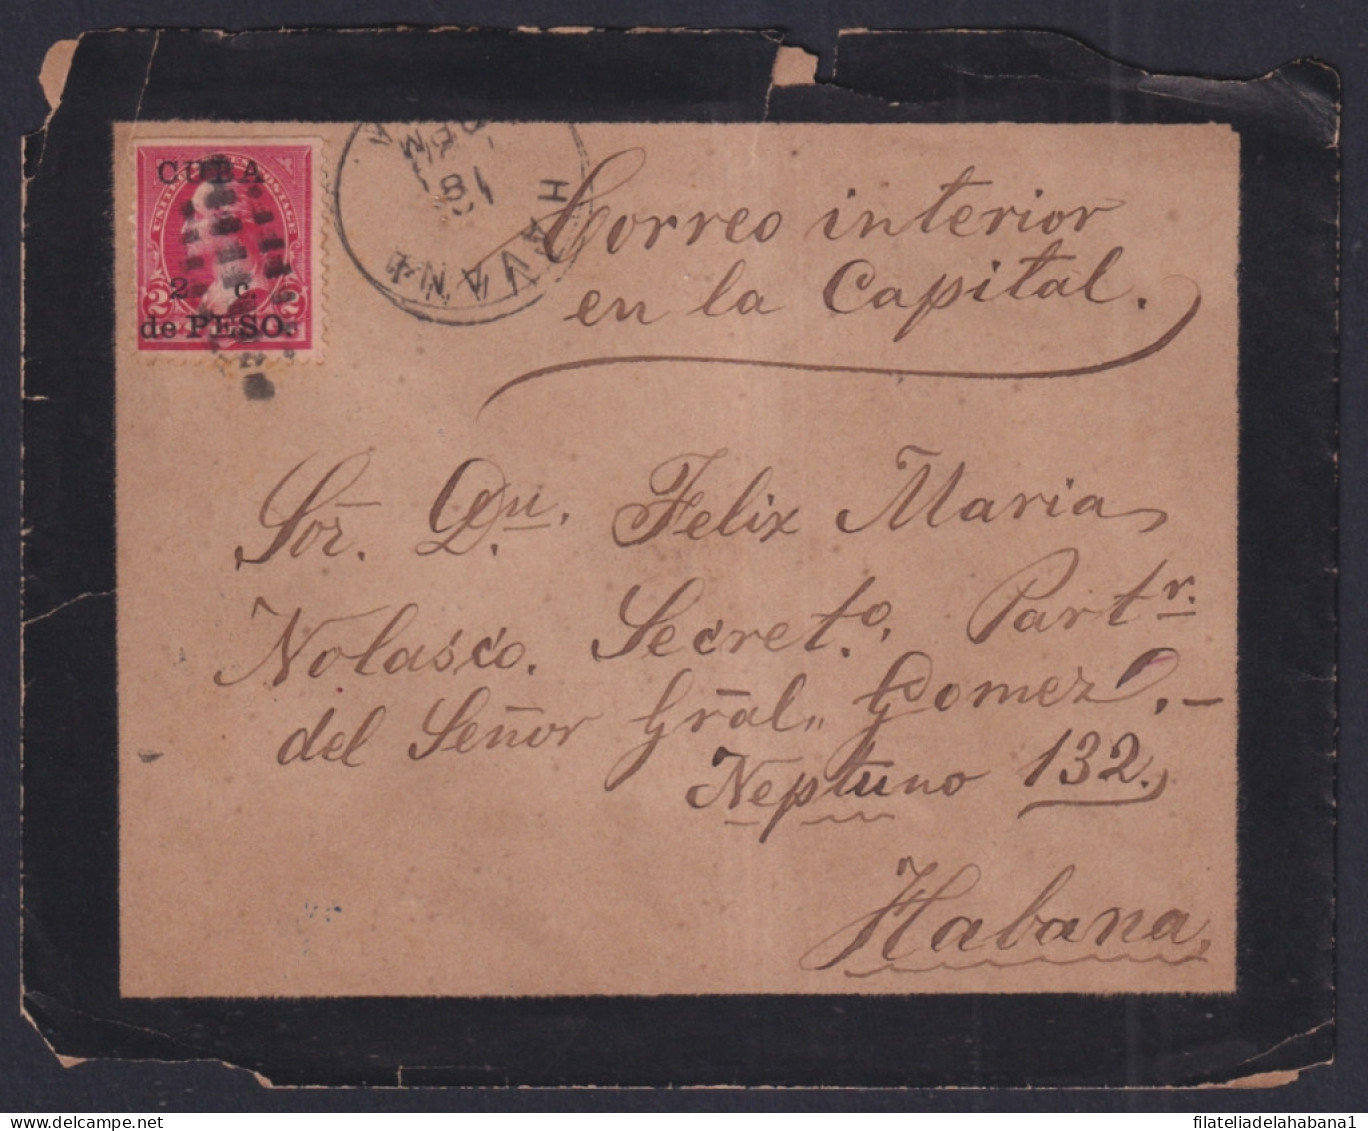 CUBA
UNITED STATES POSTAGE
2 c.
de PESO.
2 2
HAVANA
18
Correo interior
en la Capital.
Sor. Dn. Felix Maria
Nolasco. Secreto. Partr.
del Señor Gräl. Gomez.-
Neptuno 132.
Habana.
www.filateliadelahabana1